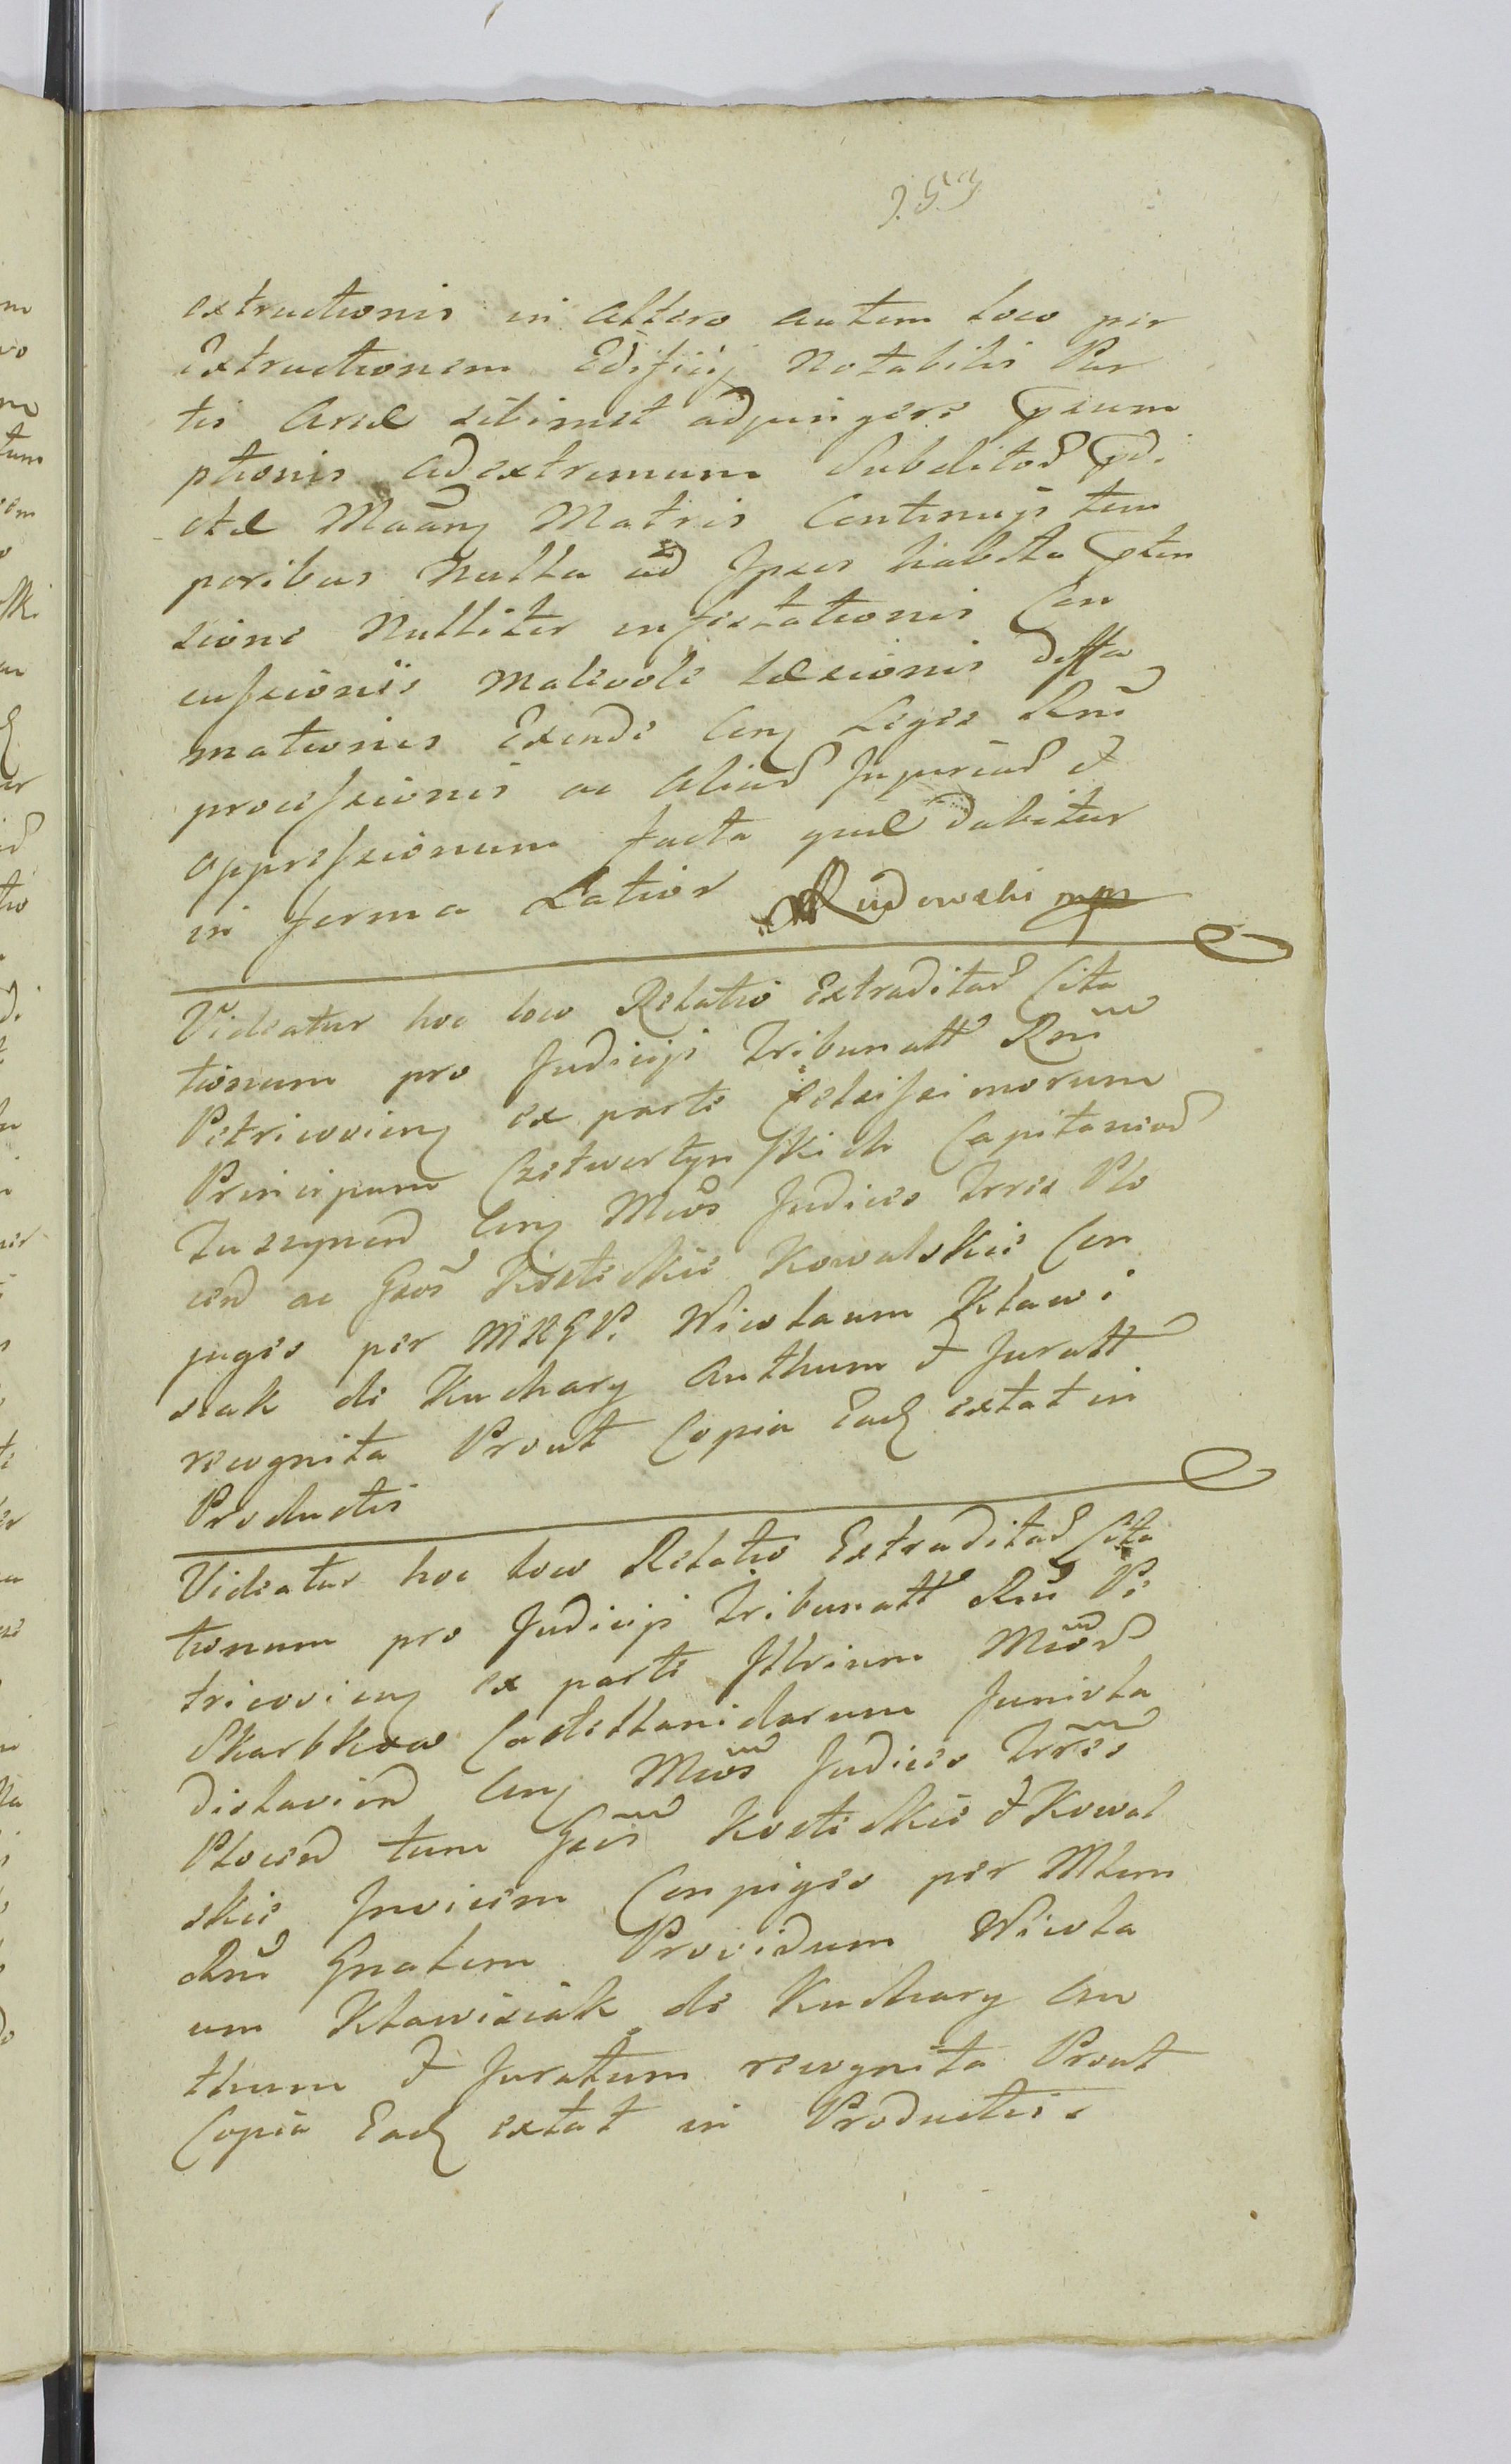 extructionis in altero autem loco per
Extructionem Edificij Notabilis Par
tis Areæ sibimet adjungere Præsum
ptionis ad extremum Subditor Prædi
ctæ Maang Matris Continujs tem
poribus Nulla ad Ipsos habita Præten
sione Nulliter infestationis Con
cussionis Malevole Læsionis Diffa
mationis Exinde Cong Leges Rni
processionis ac aliar Injuriar et
oppressionum facta quæ dabitur
in forma Latior Rudowski mpp
Videatur hoc loco Relatio Extraditar Cita
tionum pro Judicijs Tribunall Rni
Petricovieng ex parte Celsissimorum
Principum Czetwertynskich Capitaneor
Tuszynen Cong Mcos Judices Trres Plo
cen ac Gsos Kosteckie Kowalskie Con
juges per MRGP. Nicolaum Kławi
siak de Kuchary Authum et Juratt
recognita Prout Copia Eadz extat in
Productis
Videatur hoc loco Relatio Extraditar Cita
tionum pro Judicijs Tribunall Rni Pe
tricovieng ex parte Illrium Mcor
Skarbkow Castellanidarum Juniola
dislavien Cong Mcos Judices Trres
Plocen tum Gsos Kosteckie et Kowal
skie Invicem Conjuges per Mlem
Rni Gnalem Providum Nicola
um Kławisiak de Kuchary Au
thum et Juratum recognita Prout
Copia Eadz extat in Productis.